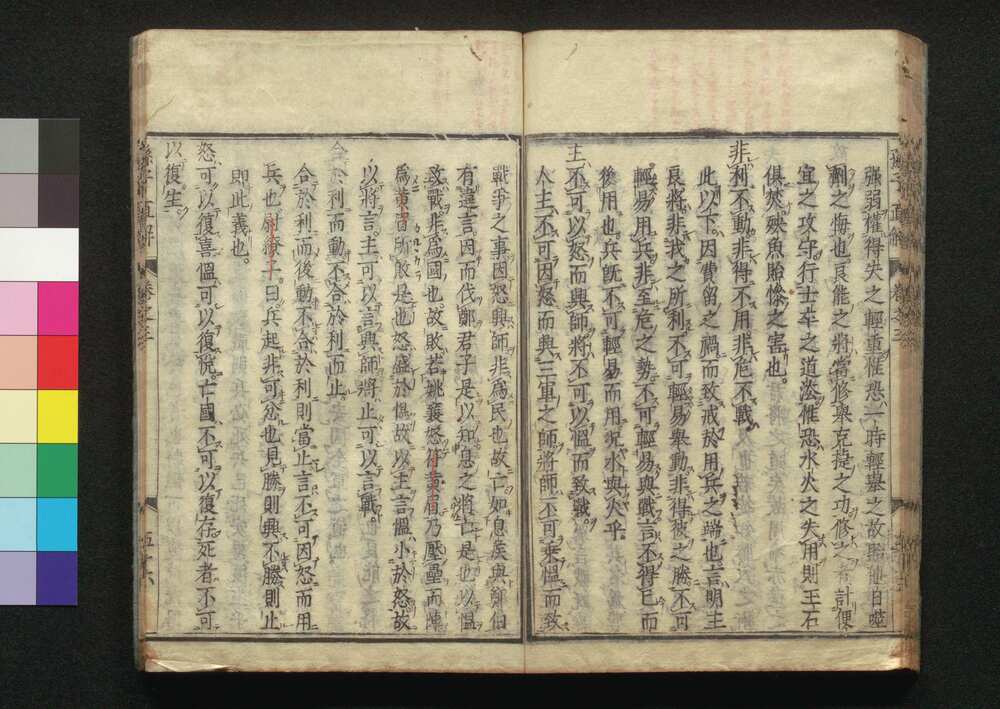 強弱權得失之輕重惟恐一時輕舉之故
割之悔也良能之將當修舉克捷之功修
宜之攻守行士卒之道法惟恐水火之失用則玉石
俱焚殃魚貽慘之害也
非利不動非得不用非危不戰
此以下因費留之禍而致戒於用兵之端也言明主
良將非我之所利不可輕易舉動非得彼之勝不可
輕易用兵非至危之勢不可輕易與戰言不得已而
後用也兵既不可輕易而用況水與火乎
主不可以怒而興師將不可以慍而致戰
人主不可因怒而興三軍之師將師不可乘慍而致
戰爭之事因怒興師非為民也故亡如息侯與鄭伯
有違言因而伐鄭君子是以知息之將亡是也以慍
致戰非為國也故敗若姚襄怒苻黃眉乃壓壘而陣
為黃眉所敗是也怒盛於慍故以主言慍小於怒故
以將言主可以言興師將止可以言戰
合於利而動不合於利而止
合於利而後動不合於利則當止言不可因怒而用
兵也尉繚子曰兵起非可忿也見勝則興不勝則止
即此義也
怒可以復喜慍可以復悅亡國不可以復存死者不可
以復生